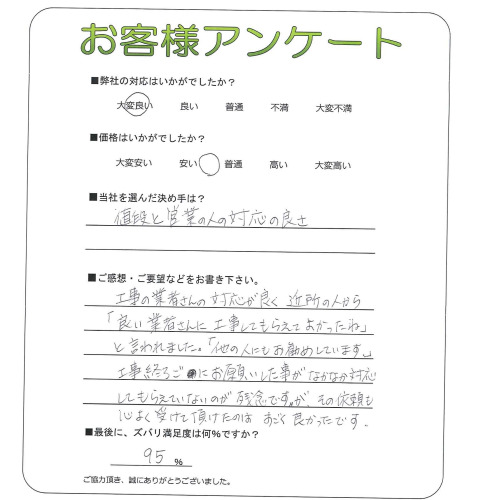 お客様アンケート
■弊社の対応はいかがでしたか？
大変良い 良い 普通 不満 大変不満
■価格はいかがでしたか？
大変安い 安い 普通 高い 大変高い
■当社を選んだ決め手は？
値段と営業の人の対応の良さ
■ご感想・ご要望などをお書き下さい。
工事の業者さんの対応が良く 近所の人から
「良い業者さんに工事してもらえてよかったね」
と言われました。「他の人にもお勧めしています。」
工事終ろご にお願いした事がなかなか対応
してもらえていないのが残念ですが、その依頼も
心よく受けて頂けたのは すごく良かったです。
■最後に、ズバリ満足度は何%ですか？
95 %
ご協力頂き、誠にありがとうございました。